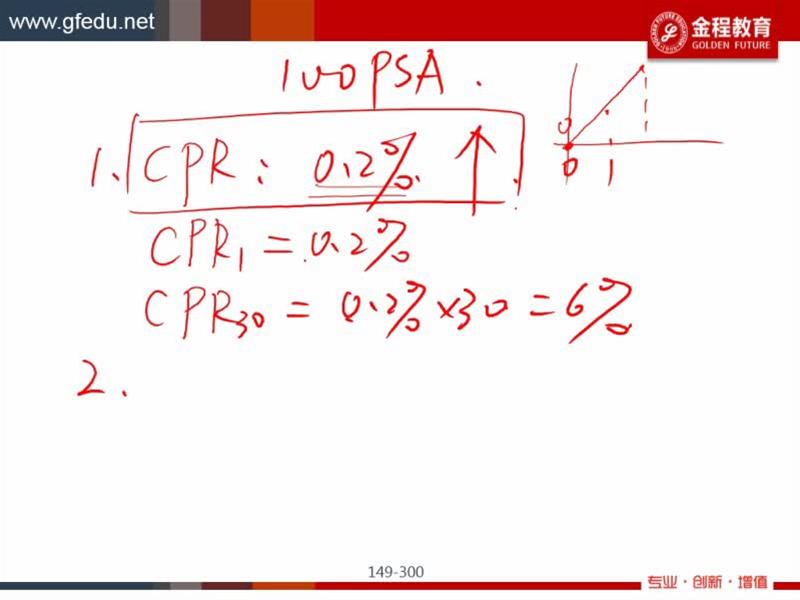 www.gfedu.net
金程教育
GOLDEN FUTURE
100PSA.
1. CPR: 0.2% ↑
0
0 1
CPR₁ = 0.2%
CPR₃₀ = 0.2% × 30 = 6%
2.
149-300
专业·创新·增值